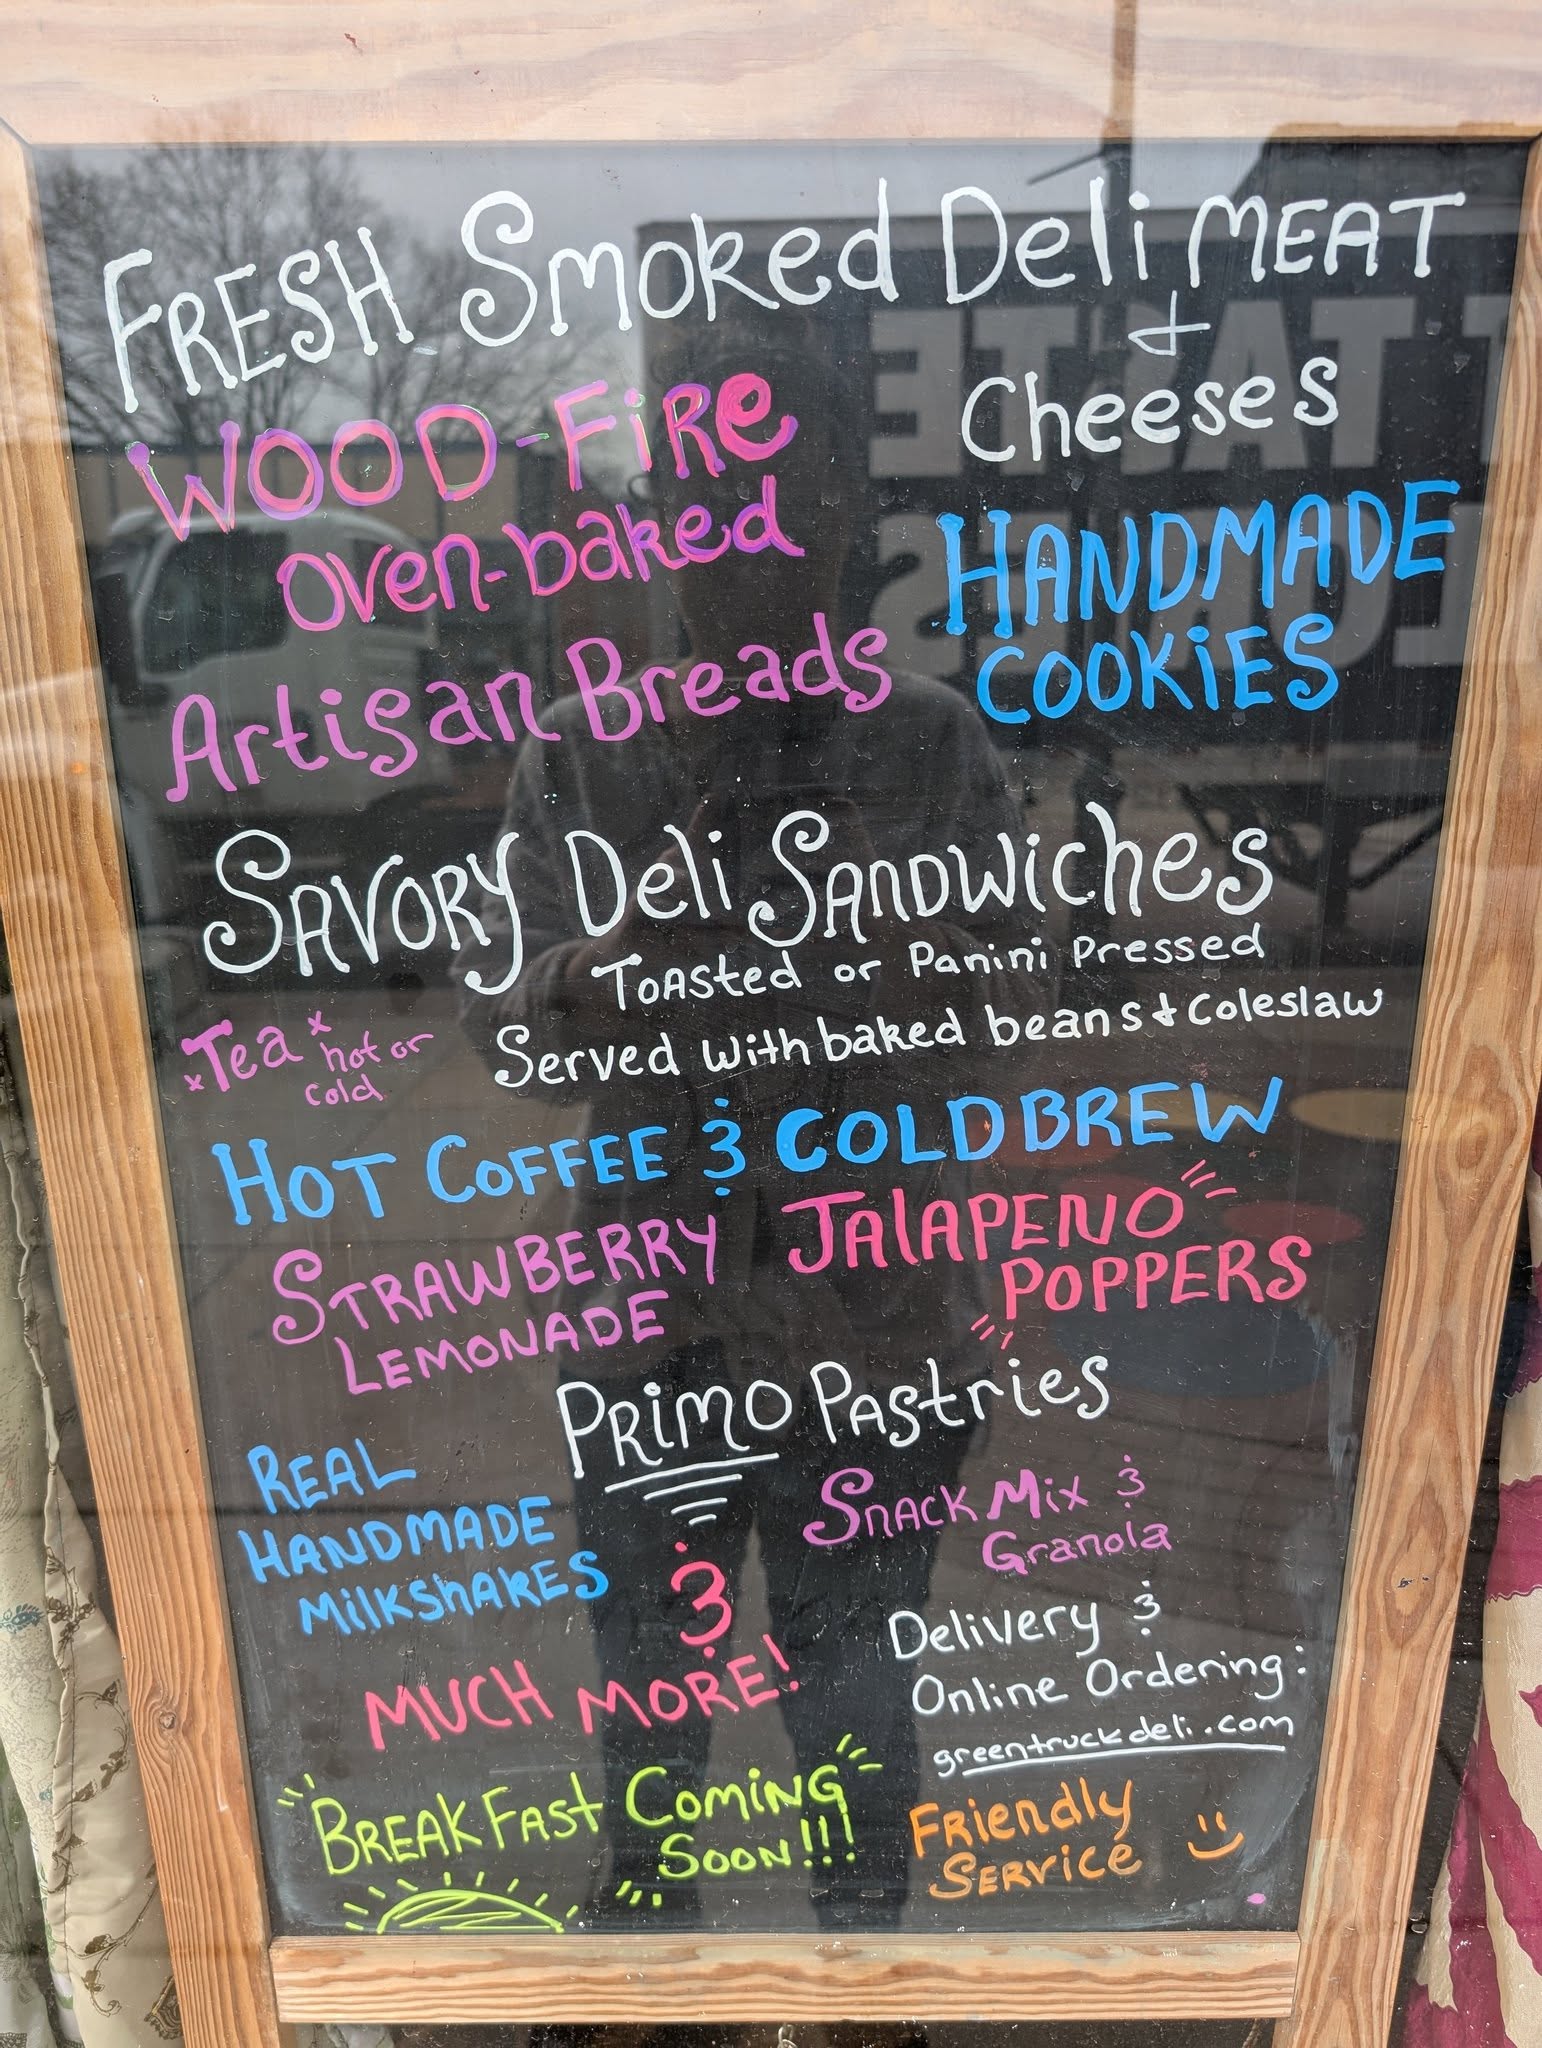 FRESH Smoked Deli MEAT
+
Cheeses
WOOD-FiRe
oven-baked
Artisan Breads
HANDMADE
COOKiES
SAVORY Deli SANDWiches
Toasted or Panini Pressed
Served with baked beans + Coleslaw
x Tea x hot or
cold
HOT COFFEE & COLD BREW
STRAWBERRY
LEMONADE
JALAPENO
POPPERS
PRiMO PAstries
REAL
HANDMADE
MilkshAKES
SNACK Mix &
Granola
&
MUCH MORE!
Delivery &
Online Ordering:
greentruckdeli.com
BREAKFASt COMiNG
SOON!!!
FRiendly
SERViCe